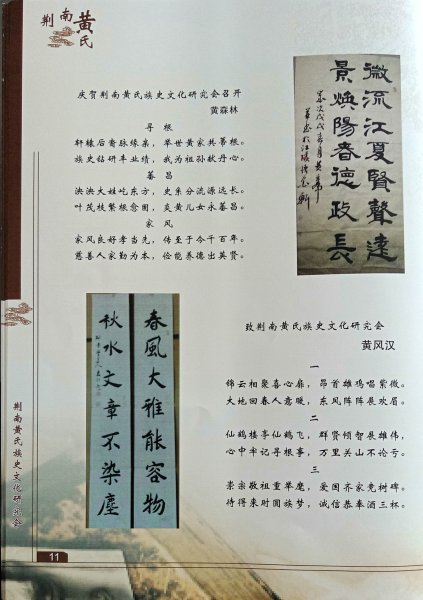 荆南黄氏
庆贺荆南黄氏族史文化研究会召开
黄霖林
寻 根
轩辕后裔脉缘亲，举世黄家共蒂根。
族史钻研丰业绩，我为祖孙献丹心。
蕃 昌
泱泱大姓屹东方，史系分流源远长。
叶茂枝繁根愈固，炎黄儿女永蕃昌。
家 风
家风良好孝当先，传至于今千百年。
慈善人家勤为本，俭能养德出英贤。
微流江夏賢聲遠
景煥陽春德政長
春風大雅能容物
秋水文章不染塵
致荆南黄氏族史文化研究会
黄风汉
一
锦云相聚喜心扉，昂首雄鸡唱紫微。
大地回春人意暖，东风阵阵展欢眉。
二
仙鹤楼亭仙鹤飞，群贤倾智展雄伟，
心中牢记寻根事，万里关山不论亏。
三
崇宗敬祖重举麾，爱国齐家竞树碑。
待得来时圆族梦，诚信恭奉酒三杯。
荆南黄氏族史文化研究会
11